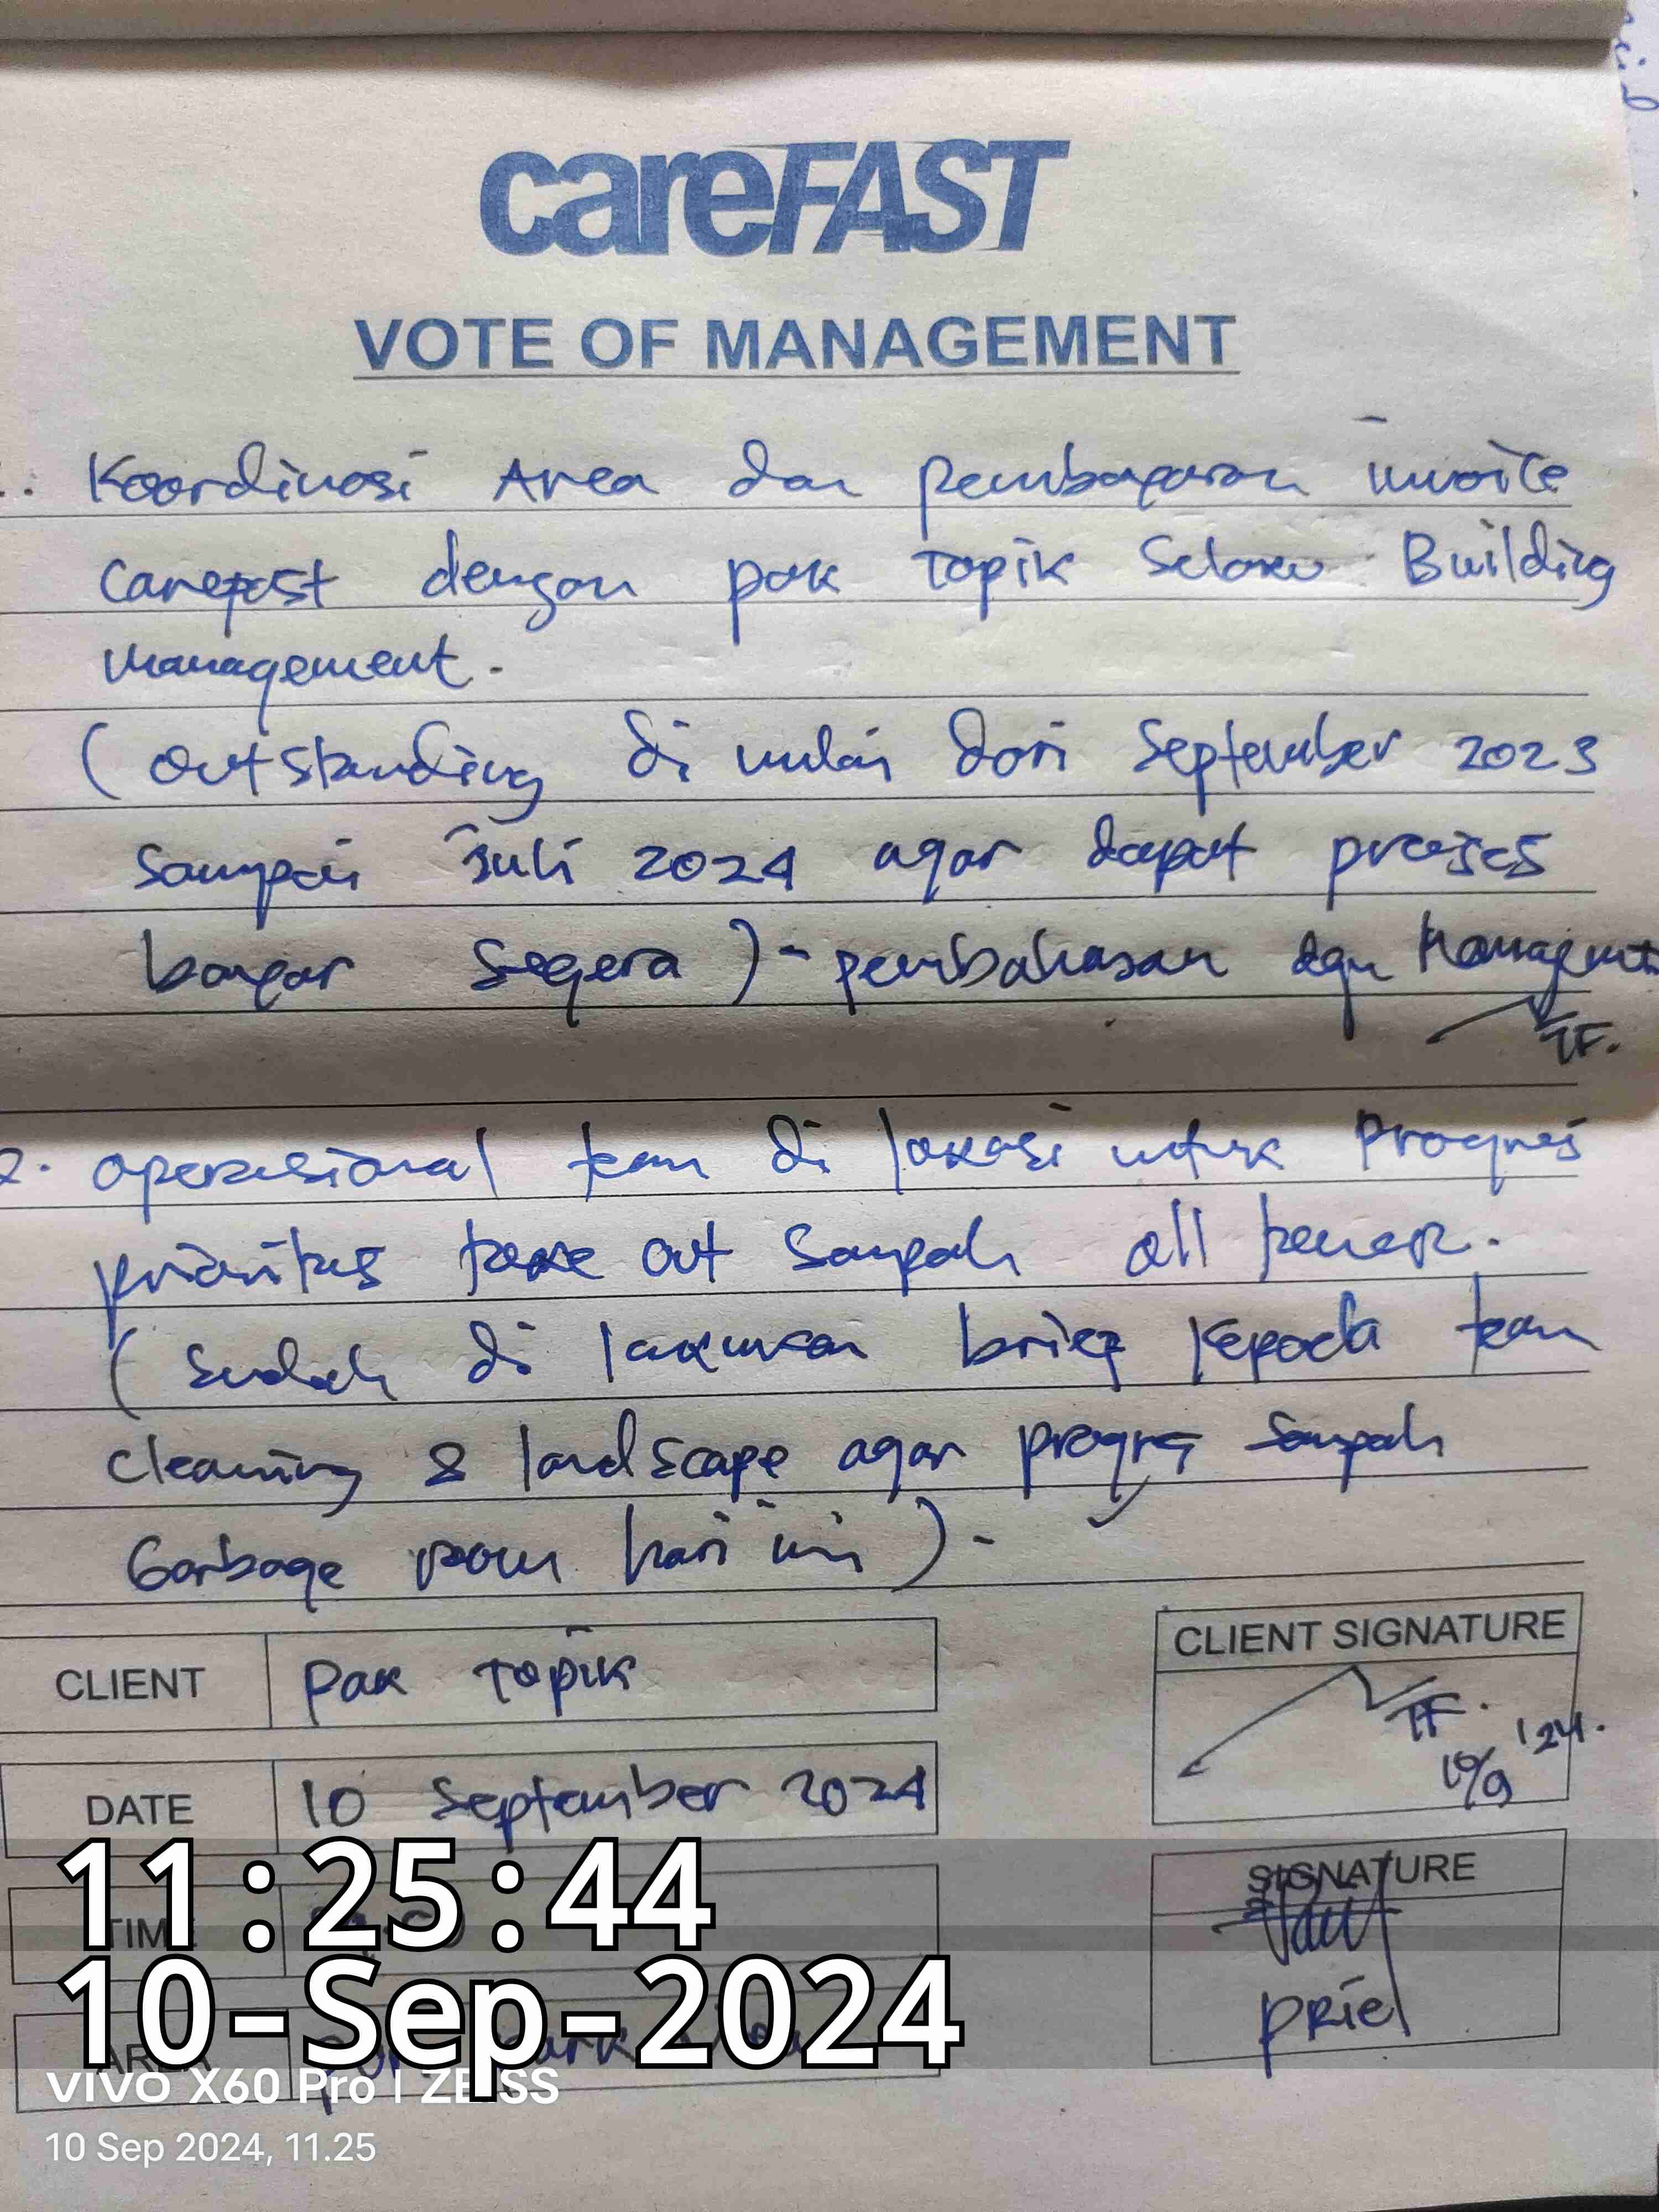 careFAST
VOTE OF MANAGEMENT
Koordinasi Area dan pembayaran invoice
Carefast dengan pak Topik Selaku Building
management.
( Outstanding di mulai dari September 2023
Sampai Juli 2024 agar dapat proses
bayar Segera ) - pembahasan dgn Managemt
TF.
2. Operasional team di lokasi untuk Progres
prioritas take out Sampah all tenant.
( Sudah di lakukan brief kepada team
Cleaning & landscape agar progres Sampah
Garbage room hari ini ) -
CLIENT Pak Topik
CLIENT SIGNATURE
TF.
10/9 '24.
DATE 10 September 2024
SIGNATURE
PRiel
TIME
AREA
11:25:44
10-Sep-2024
vivo X60 Pro | ZEISS
10 Sep 2024, 11.25